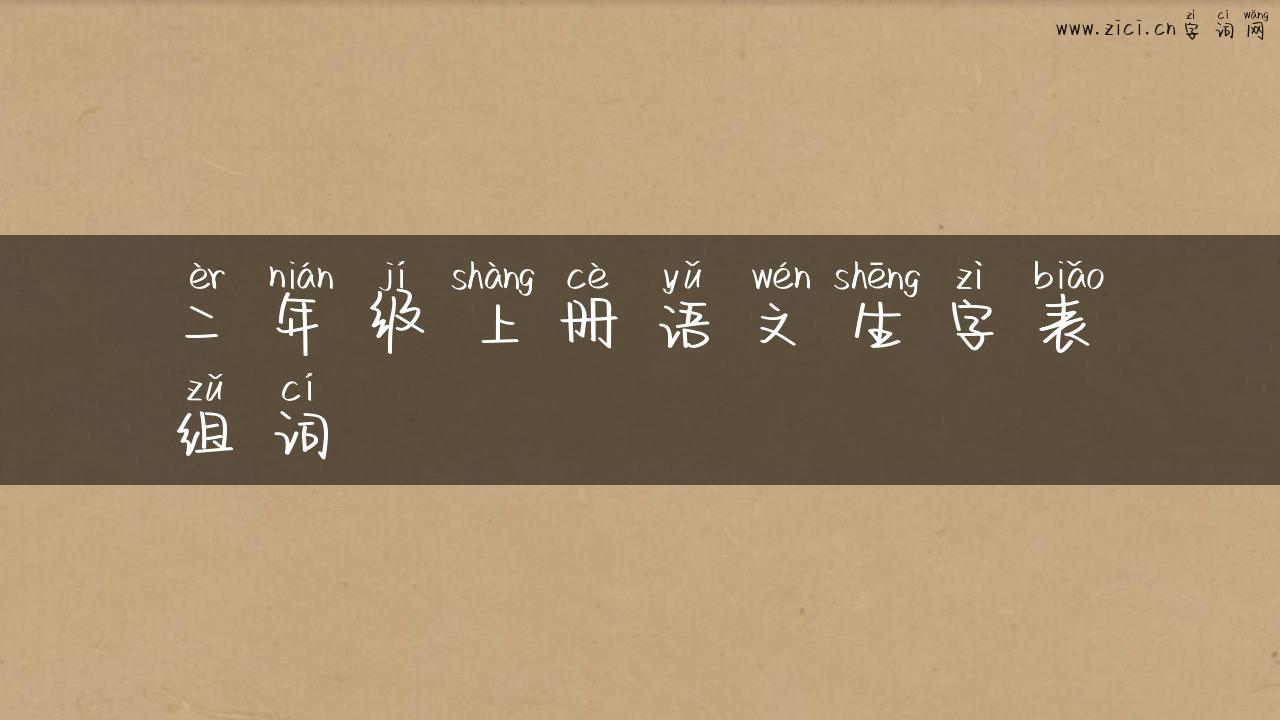 zì cí wǎng
www.zici.cn 字词网
èr nián jí shàng cè yǔ wén shēng zì biǎo
二年级上册语文生字表
zǔ cí
组词